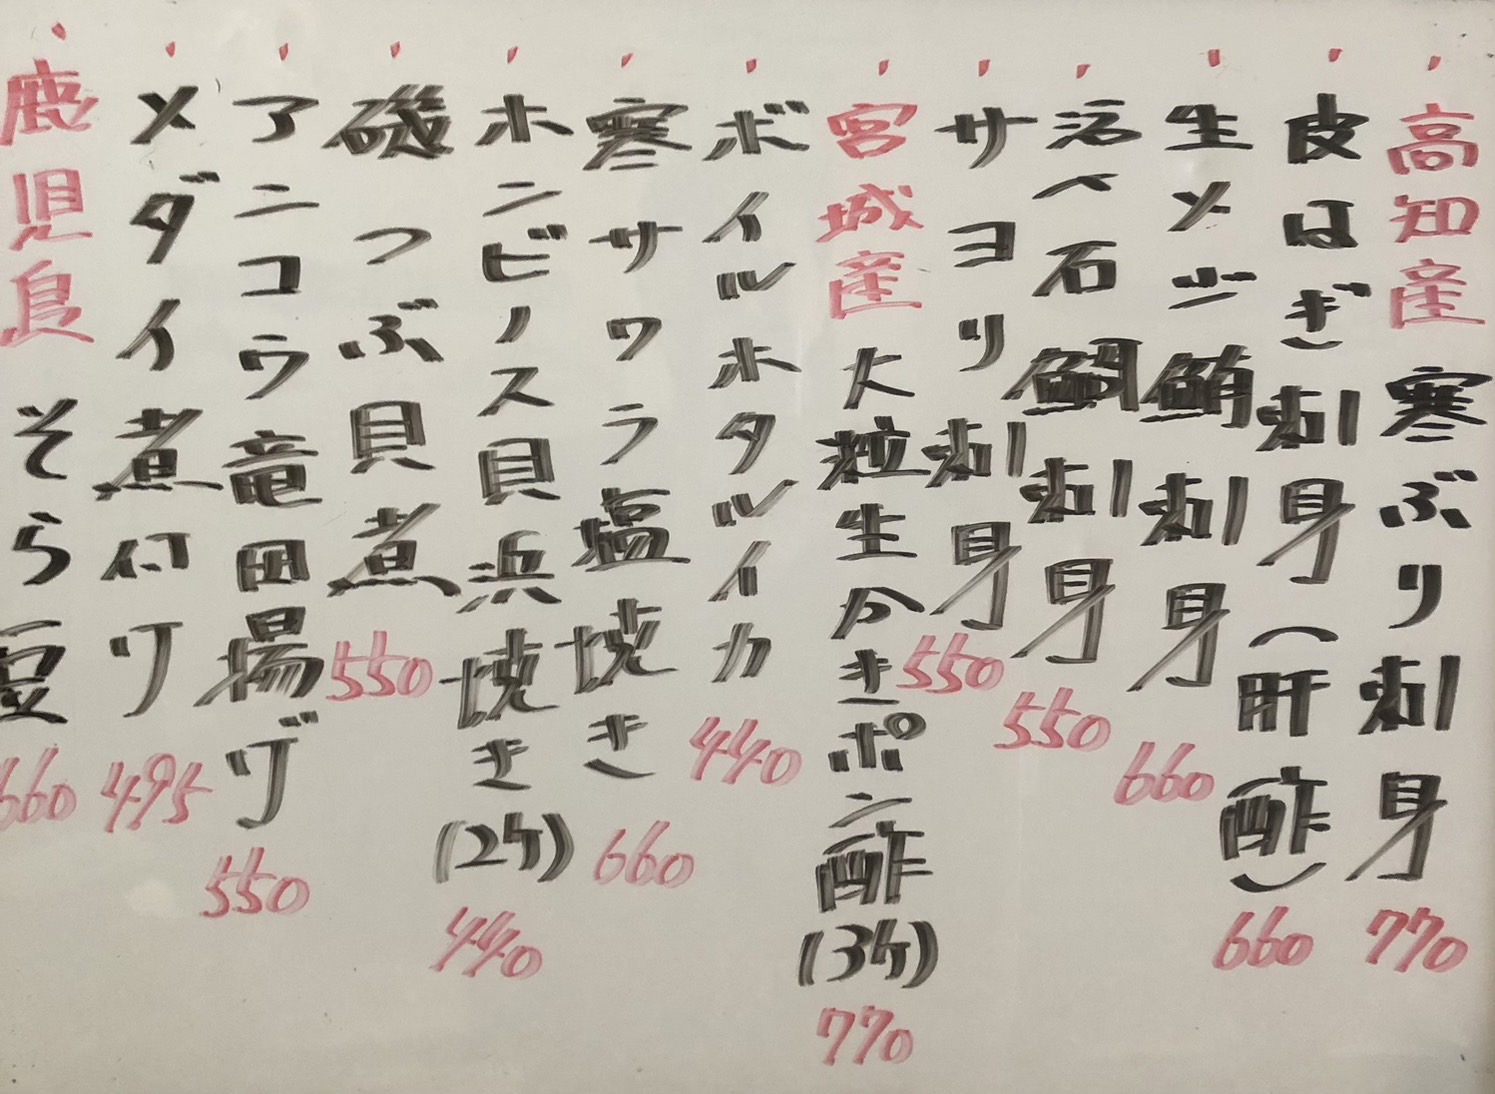 高知産 寒ぶり刺身 770
皮はぎ刺身(肝酢) 660
生メジ鮪刺身 660
活〆石鯛刺身 550
サヨリ刺身 550
宮城産 大粒生カキポン酢(3ケ) 770
ボイルホタルイカ 440
寒サワラ塩焼き 660
ホンビノス貝浜焼き(2ケ) 440
磯つぶ貝煮 550
アンコウ竜田揚げ 550
メダイ煮付け 495
鹿児島 そら豆 660